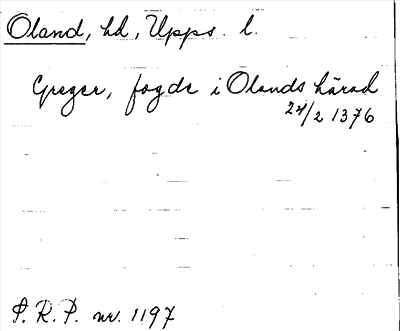 Oland, hd, Upps. l.
Greger, fogde i Olands härad
24/2 1376
P. R. P. nr. 1197